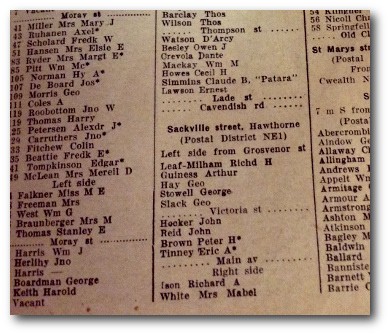 Vacant
Moray st
41 Miller Mrs Mary J
43 Ruhanen Axel*
47 Scholard Fredk W
51 Hansen Mrs Elsie E
83 Ryder Mrs Margt E*
85 Pitt Wm Mc*
105 Norman Hy A*
107 De Board Jos*
109 Morris Geo
111 Coles A
119 Roobottom Jno W
19 Thomas Harry
25 Petersen Alexdr J*
29 Carruthers Jno*
33 Fitchew Colin
35 Beattie Fredk E*
41 Tompkinson Edgar*
49 McLean Mrs Merell D
Left side
Falkner Miss M E
Freeman Mrs
West Wm G
Braunberger Mrs M
Thomas Stanley E
Moray st
Harris Wm J
Herlihy Jno
Harris —
Boardman George
Keith Harold
Vacant
Barclay Thos
Wilson Thos
Thompson st
Watson D'Arcy
Besley Owen J
Crevola Dante
Mackay Wm M
Howes Cecil H
Simmins Claude B, "Patara"
Lawson Ernest
Lade st
Cavendish rd
Sackville street, Hawthorne
(Postal District NE1)
Left side from Grosvenor st
Leaf-Milham Richd H
Guiness Arthur
Hay Geo
Stowell George
Slack Geo
Victoria st
Hocker John
Reid John
Brown Peter H*
Tinney Eric A*
Main av
Right side
Ison Richard A
White Mrs Mabel
54 Klingner
56 Nicoll
58 Springfiel
Old Cl
St Marys str
(Postal
From
Cwealth
S
7 m S from
(Postal
Abercrombi
Aindow Ge
Allaway Ch
Allingham
Andrews
Appelt Wm
Armitage
Armour A
Armstrong
Ashton M
Atkinson
Bagley M
Baldwin
Ballard
Banniste
Barnett
Barrie C